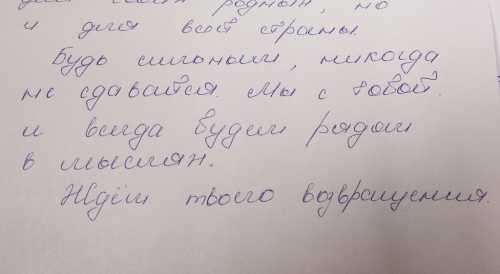 для своих родных, но
и для всей страны.
Будь сильным, никогда
не сдавайся. Мы с тобой
и всегда будем рядом
в мыслях.
Ждём твоего возвращения.